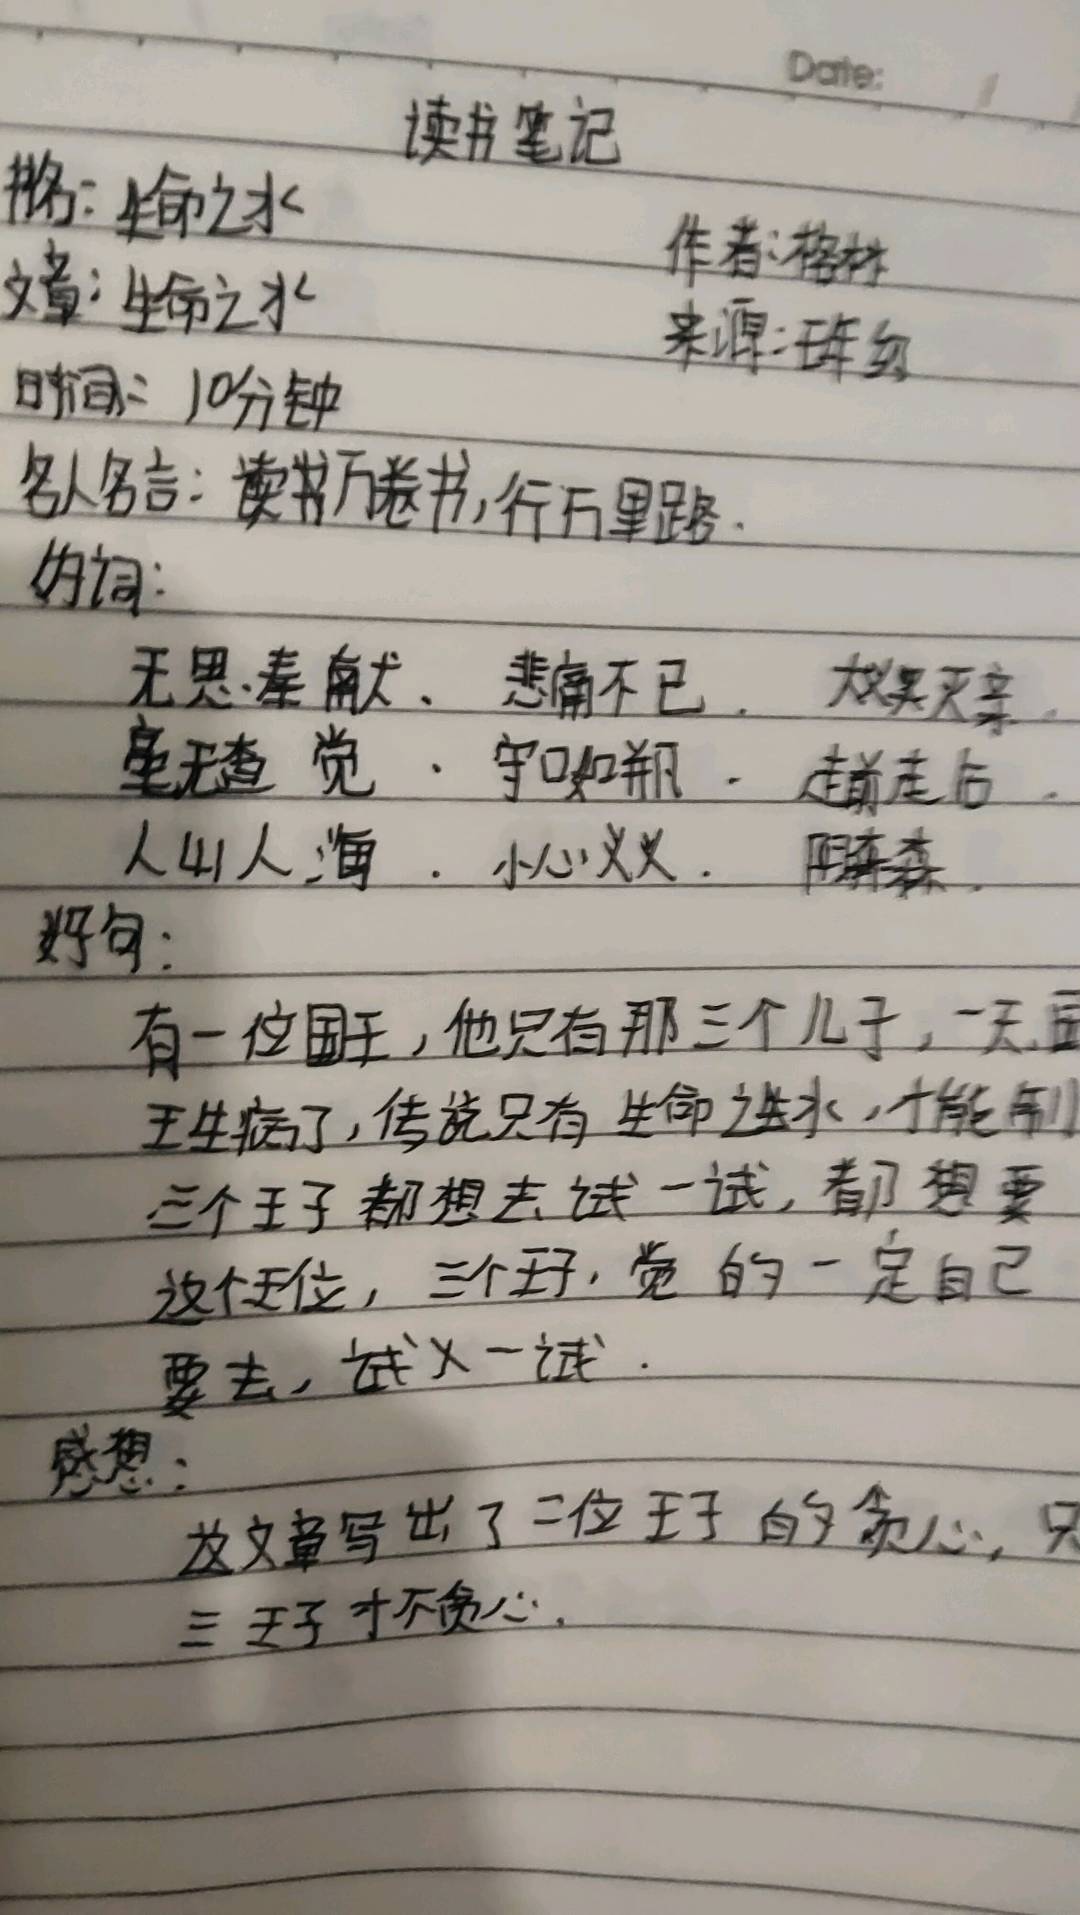 Date:
读书笔记
书名:生命之水
作者:格林
文章:生命之水
来源:
时间:10分钟
名人名言:读书万卷书,行万里路.
好词:
无思奉献、悲痛不已.大义灭亲.
毫无查觉.守口如瓶.走前走后.
人山人海.小心义义.阴森森.
好句:
有一位国王,他只有那三个儿子,一天,国
王生病了,传说只有生命之水,才能制
三个王子都想去试一试,都想要
这个王位,三个王子,觉的一定自己
要去,试一试.
感想:
文章写出了二位王子的贪心,只
三王子才不贪心.